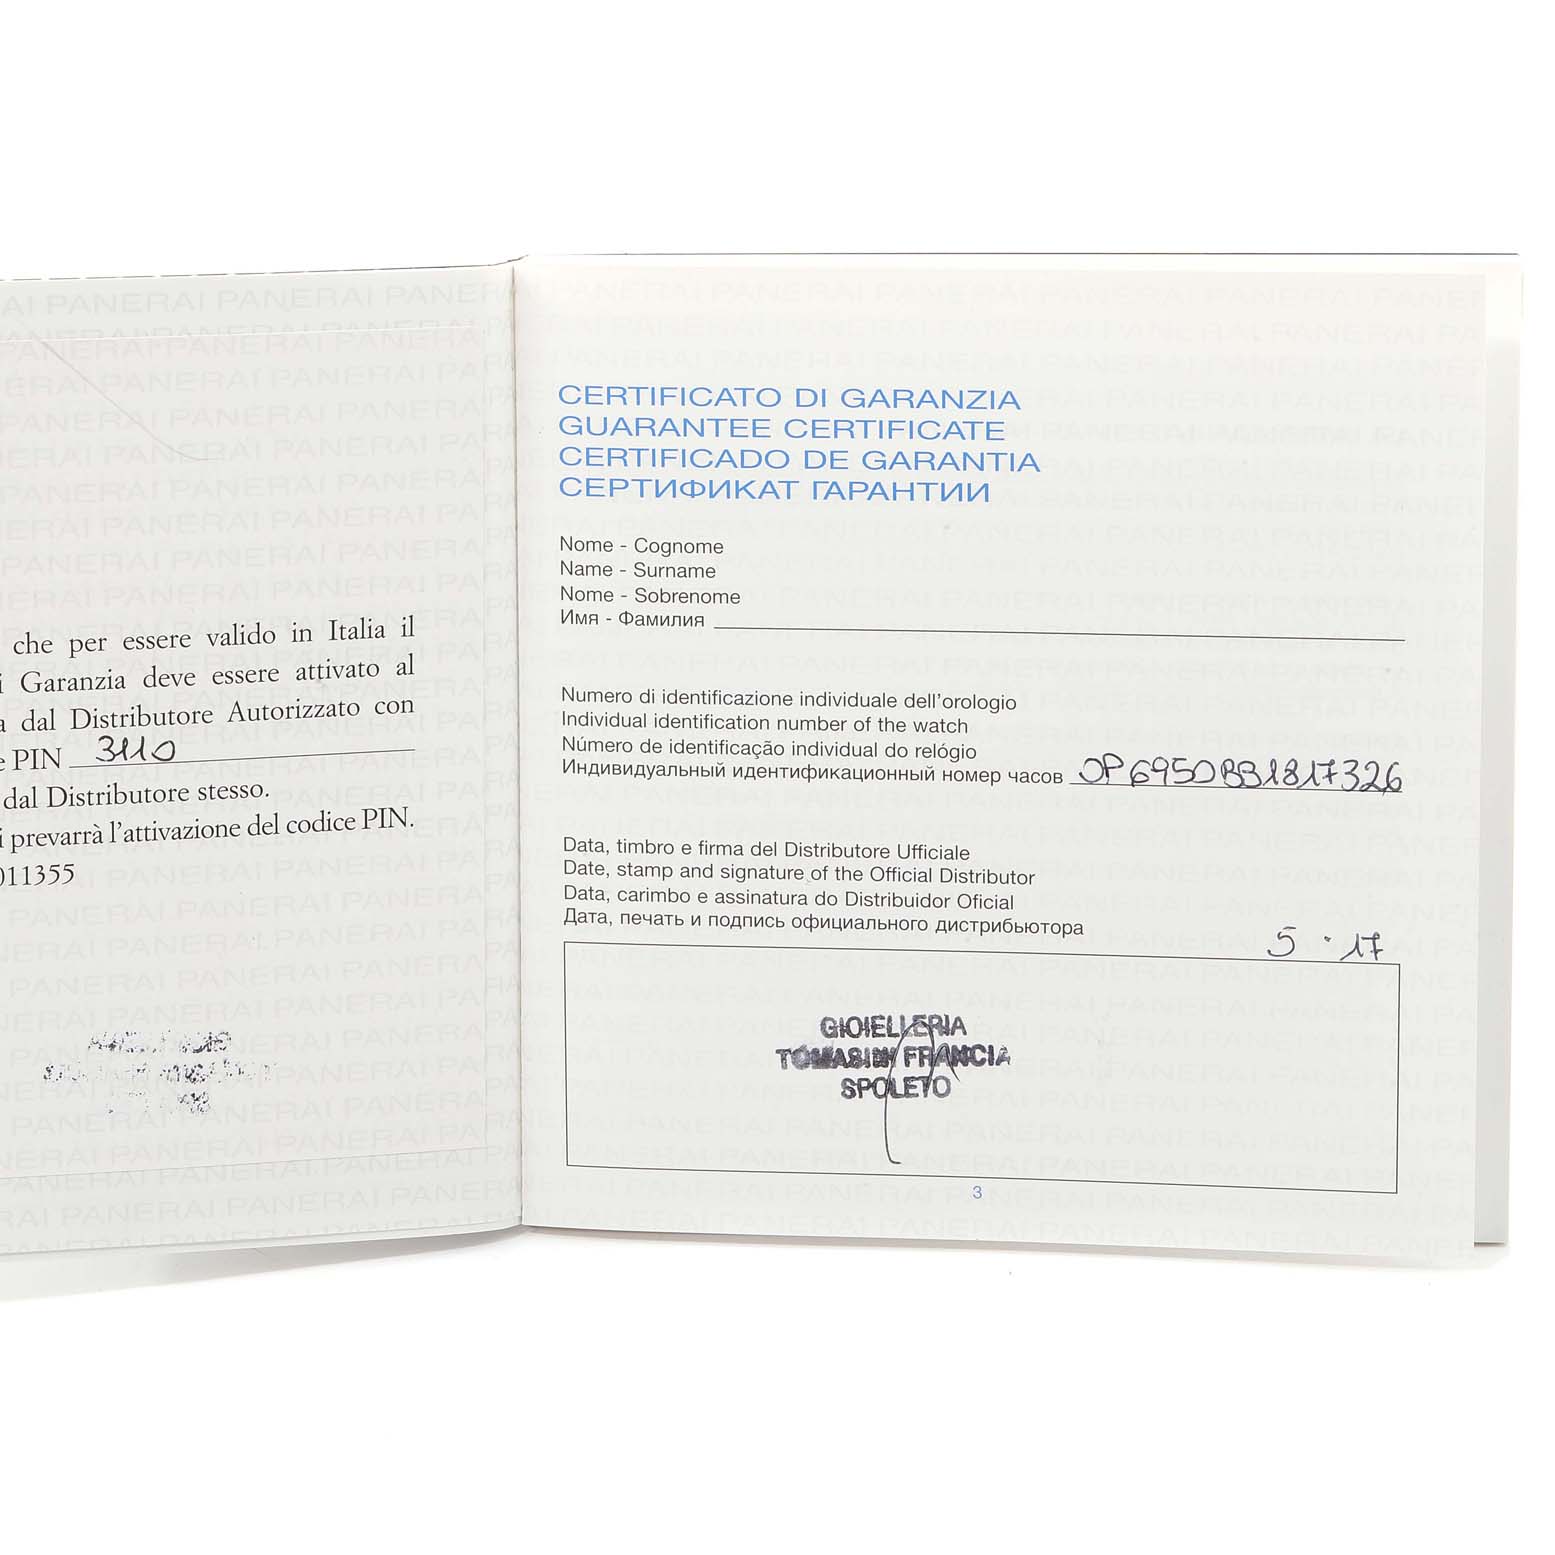 che per essere valido in Italia il
Garanzia deve essere attivato al
dal Distributore Autorizzato con
PIN 3110
dal Distributore stesso.
prevarrà l'attivazione del codice PIN.
011355
CERTIFICATO DI GARANZIA
GUARANTEE CERTIFICATE
CERTIFICADO DE GARANTIA
СЕРТИФИКАТ ГАРАНТИИ
Nome - Cognome
Name - Surname
Nome - Sobrenome
Имя - Фамилия
Numero di identificazione individuale dell'orologio
Individual identification number of the watch
Número de identificação individual do relógio
Индивидуальный идентификационный номер часов OP6950BB1817326
Data, timbro e firma del Distributore Ufficiale
Date, stamp and signature of the Official Distributor
Data, carimbo e assinatura do Distribuidor Oficial
Дата, печать и подпись официального дистрибьютора
5 · 17
GIOIELLERIA
TOMASINI FRANCIA
SPOLETO
3